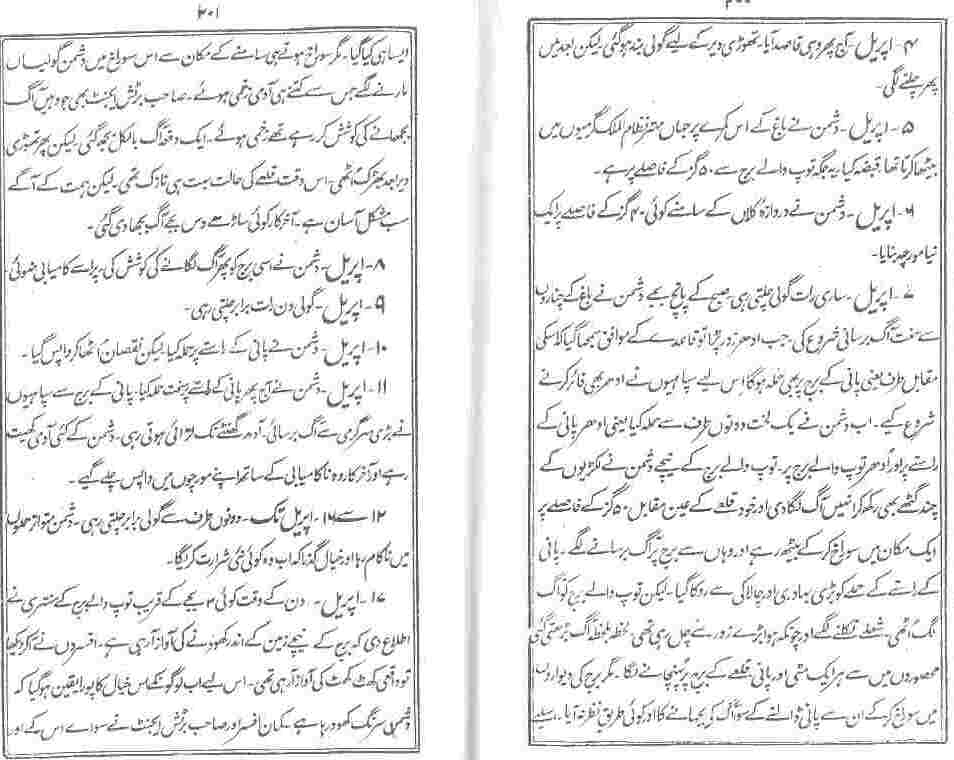 ۴ - اپریل - آج پھر وہی قاصد آیا - تھوڑی دیر کے لیے گولی بند ہوگئی لیکن بعد میں
پھر چلنے لگی -
۵ - اپریل - دشمن نے باغ کے اس کمرے پر جہاں مہتر نظام الملک گرمیوں میں
بیٹھا کرتا تھا، قبضہ کیا، یہ جگہ توپ والے برج سے ۵۰ گز کے فاصلے پر ہے -
۶ - اپریل - دشمن نے دروازہ کلاں کے سامنے کوئی ۴۰ گز کے فاصلے پر ایک
نیا مورچہ بنایا -
۷ - اپریل - ساری رات گولی چلتی رہی صبح کے پانچ بجے دشمن نے باغ کے چناروں
سے سخت آگ برسانی شروع کی، جب ادھر زور پڑا تو قاعدے کے موافق سمجھا گیا کہ اسکی
مقابل طرف یعنی پانی کے برج پر بھی حملہ ہوگا اس لیے سپاہیوں نے ادھر بھی فائر کرنے
شروع کیے - اب دشمن نے یک لخت دونوں طرف سے حملہ کیا یعنی ادھر پانی کے
راستے پر اور اُدھر توپ والے برج پر - توپ والے برج کے نیچے دشمن نے لکڑیوں کے
چند گٹھے بھی رکھ کر انہیں آگ لگا دی اور خود قلعے کے عین مقابل ۵۰ گز کے فاصلے پر
ایک مکان میں سوراخ کر کے بیٹھ رہے اور وہاں سے برج پر آگ برسانے لگے - پانی
کے راستے کے حملے کو بڑی بہادری اور چالاکی سے روکا گیا - لیکن توپ والے برج کو آگ
لگ اُٹھی - شعلے نکلنے لگے اور چونکہ ہوا بڑے زور سے چل رہی تھی لحظہ بلحظہ آگ بڑھتی گئی
محصوروں میں سے ہر ایک مٹی اور پانی قلعے کے برج پر پہنچانے لگا - مگر برج کی دیواروں
میں سوراخ کر کے ان سے پانی ڈالنے کے سوا آگ کے بجھانے کا اور کوئی طریق نظر نہ آیا - اسلیے
۲۰۱
ایسا ہی کیا گیا - مگر سوراخ ہوتے ہی سامنے کے مکان سے اس سوراخ میں دشمن گولیاں
مارنے لگے جس سے کتنے ہی آدمی زخمی ہوئے - صاحب برٹش ایجنٹ بھی جو وہیں آگ
بجھانے کی کوشش کر رہے تھے زخمی ہوئے - ایک دفعہ آگ بالکل بجھ گئی لیکن پھر تھوڑی
دیر بعد بھڑک اُٹھی - اس وقت قلعے کی حالت بہت ہی نازک تھی - لیکن ہمت کے آگے
سب مشکل آسان ہے - آخر کار کوئی ساڑھے دس بجے آگ بجھا دی گئی -
۸ - اپریل - دشمن نے اسی برج کو پھر آگ لگانے کی کوشش کی پر اسے کامیابی نہ ہوئی -
۹ - اپریل - گولی دن رات برابر چلتی رہی -
۱۰ - اپریل - دشمن نے پانی کے راستے پر حملہ کیا لیکن نقصان اُٹھا کر واپس گیا -
۱۱ - اپریل - دشمن نے آج پھر پانی کے راستے پر سخت حملہ کیا - پانی کے برج سے سپاہیوں
نے بڑی سرگرمی سے آگ برسائی - آدھ گھنٹے تک لڑائی ہوتی رہی - دشمن کے کئی آدمی کھیت
رہے اور آخر کار وہ ناکامیابی کے ساتھ اپنے مورچوں میں واپس چلے گیے -
۱۲ سے ۱۶ - اپریل تک - دونوں طرف سے گولی برابر چلتی رہی - دشمن متواتر حملوں
میں ناکام رہا اور خیال گذرا کہ اب وہ کوئی نئی شرارت کرے گا -
۱۷ - اپریل - دن کے وقت کوئی ۳ بجے کے قریب توپ والے برج کے سنتری نے
اطلاع دی کہ برج کے نیچے زمین کے اندر کھودنے کی آواز آ رہی ہے - افسروں نے آ کر دیکھا
تو واقعی کھٹ کھٹ کی آواز آ رہی تھی - اس لیے اب لوگوں کے اس خیال کا پورا یقین ہو گیا کہ
دشمن سرنگ کھود رہا ہے - کمان افسر اور صاحب برٹش ایجنٹ نے سوائے اس کے اور